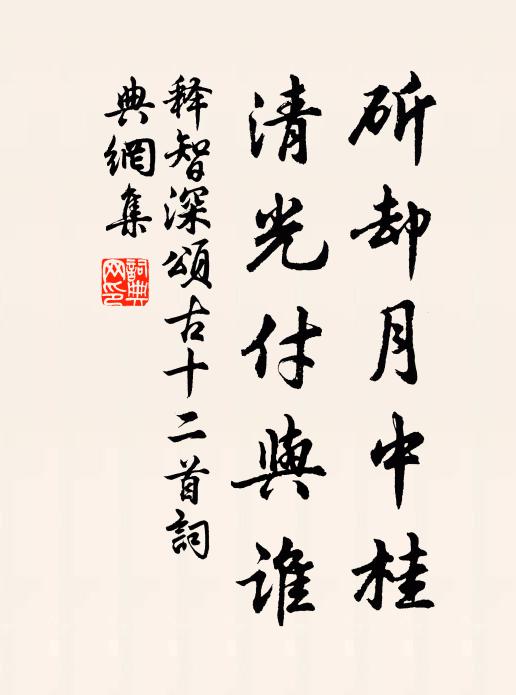 斫却月中桂
清光付與誰
释智深頌古十二首詞
典網集
詞典
网印